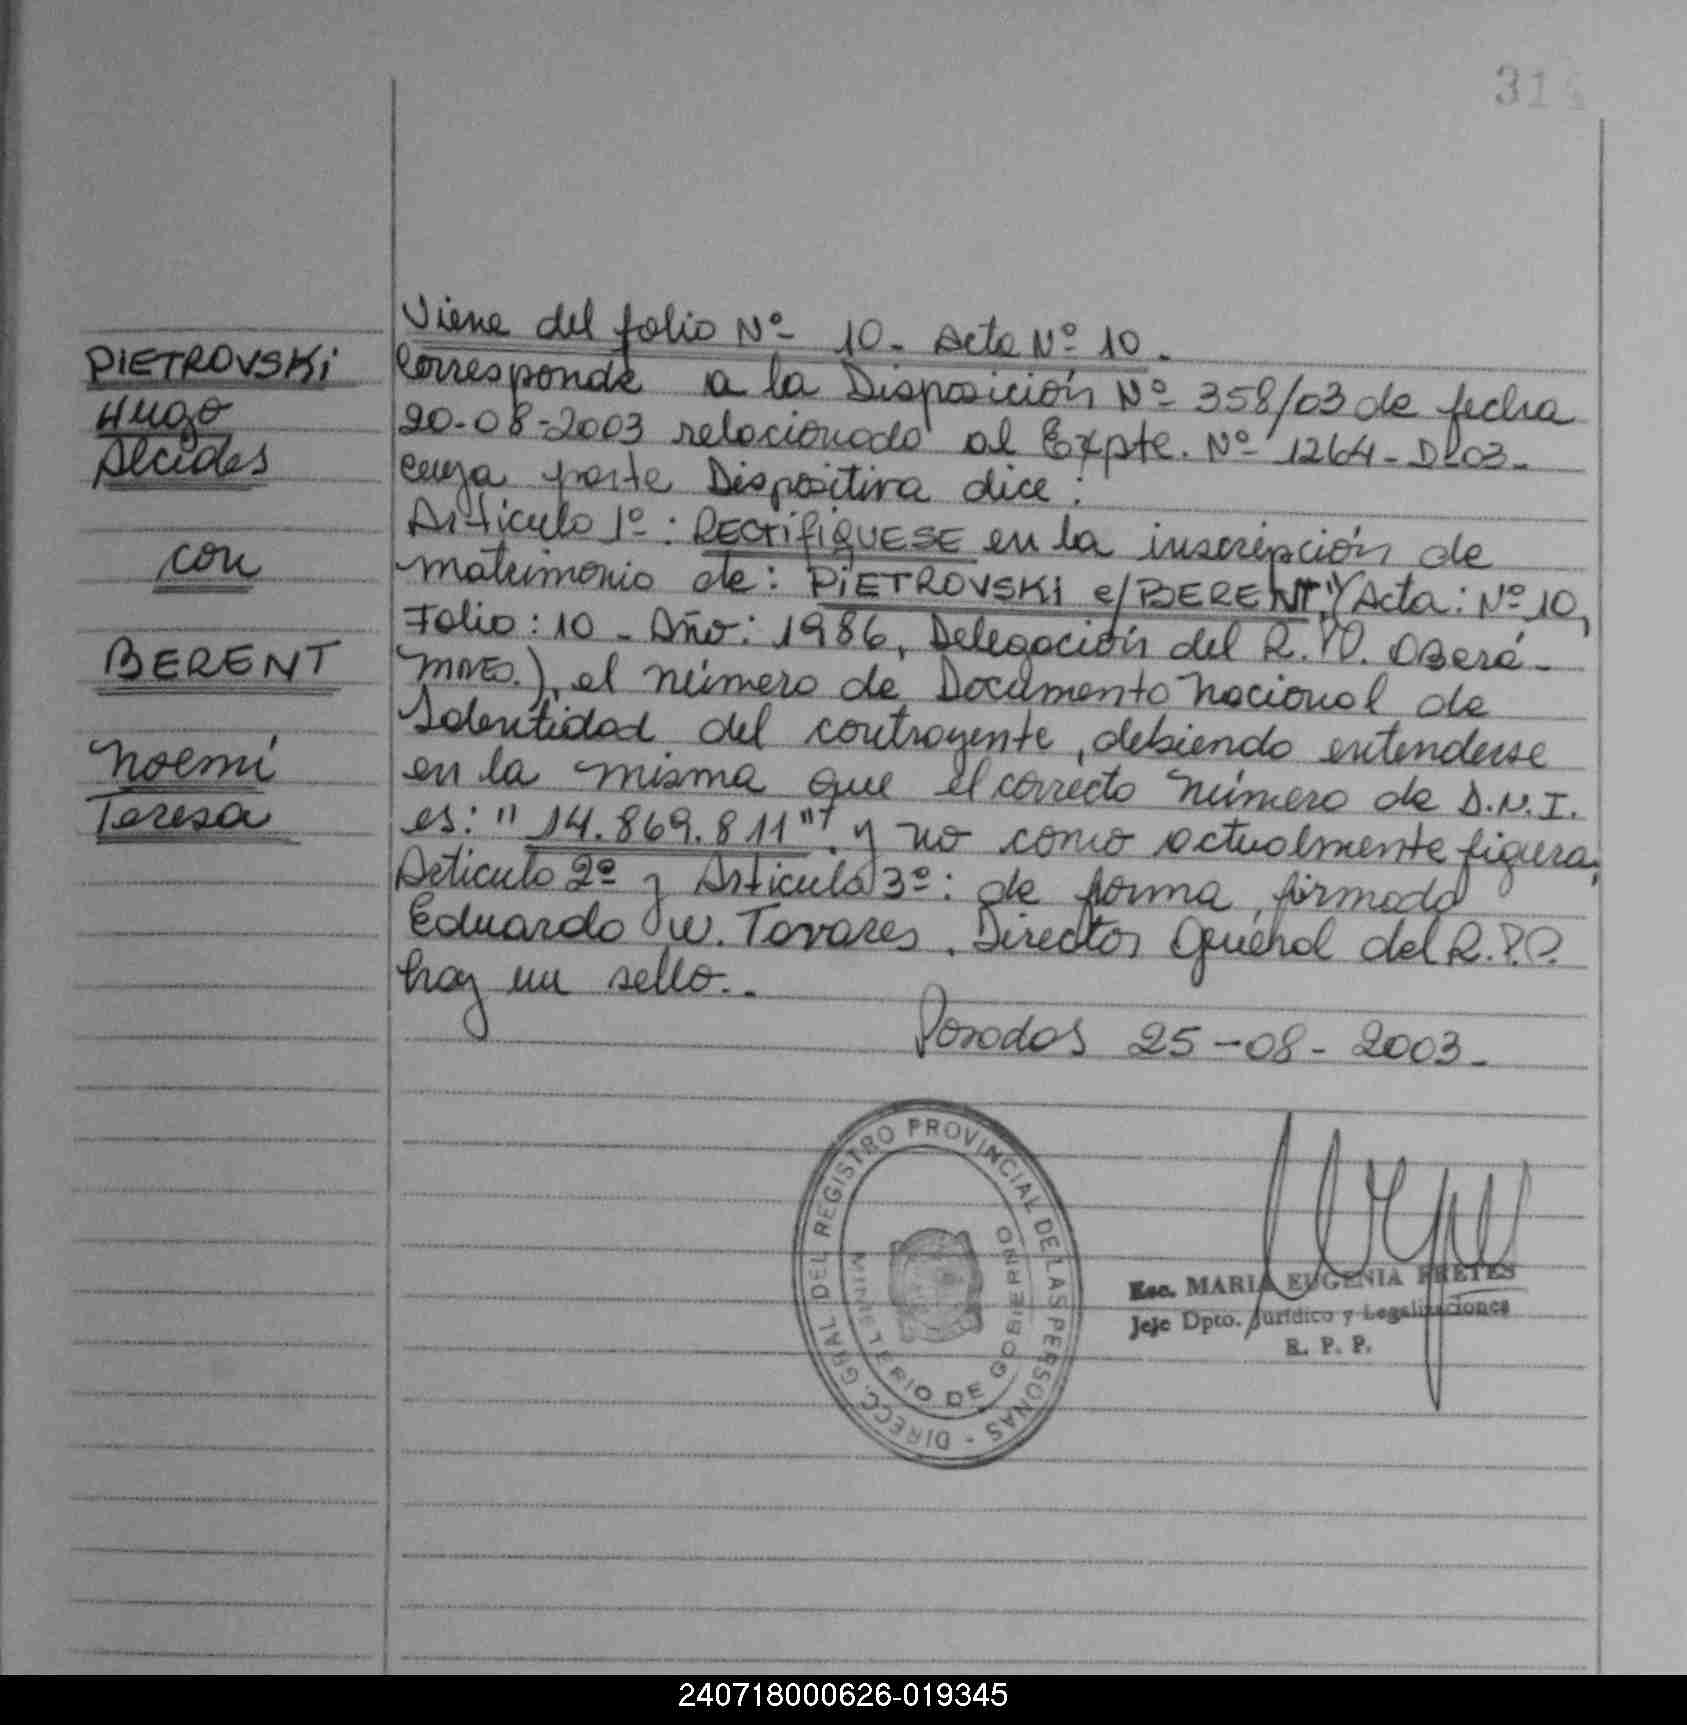 31
Viene del folio Nº 10. Acta Nº 10.
PIETROVSKI
Hugo
Alcides
con
BERENT
Noemí
Teresa
Corresponde a la Disposición Nº 358/03 de fecha
20-08-2003 relacionado al Expte. Nº 1264-D-03-
cuya parte Dispositiva dice:
Artículo 1º: RECTIFIQUESE en la inscripción de
matrimonio de: PIETROVSKI c/BERENT, (Acta: Nº 10,
Folio: 10 - Año: 1986, Delegación del R.P. Oberá-
Mnes.), el número de Documento Nacional de
Identidad del contrayente, debiendo entenderse
en la misma que el correcto número de D.N.I.
es: "14.869.811" y no como actualmente figura;
Artículo 2º y Artículo 3º: de forma, firmado
Eduardo W. Tovares. Director General del R.P.P.
hay un sello..
Posadas 25-08-2003-
DIRECC. GRAL DEL REGISTRO PROVINCIAL DE LAS PERSONAS -
MINISTERIO DE GOBIERNO
Esc. MARIA EUGENIA FRETES
Jefe Dpto. Jurídico y Legalizaciones
R. P. P.
240718000626-019345